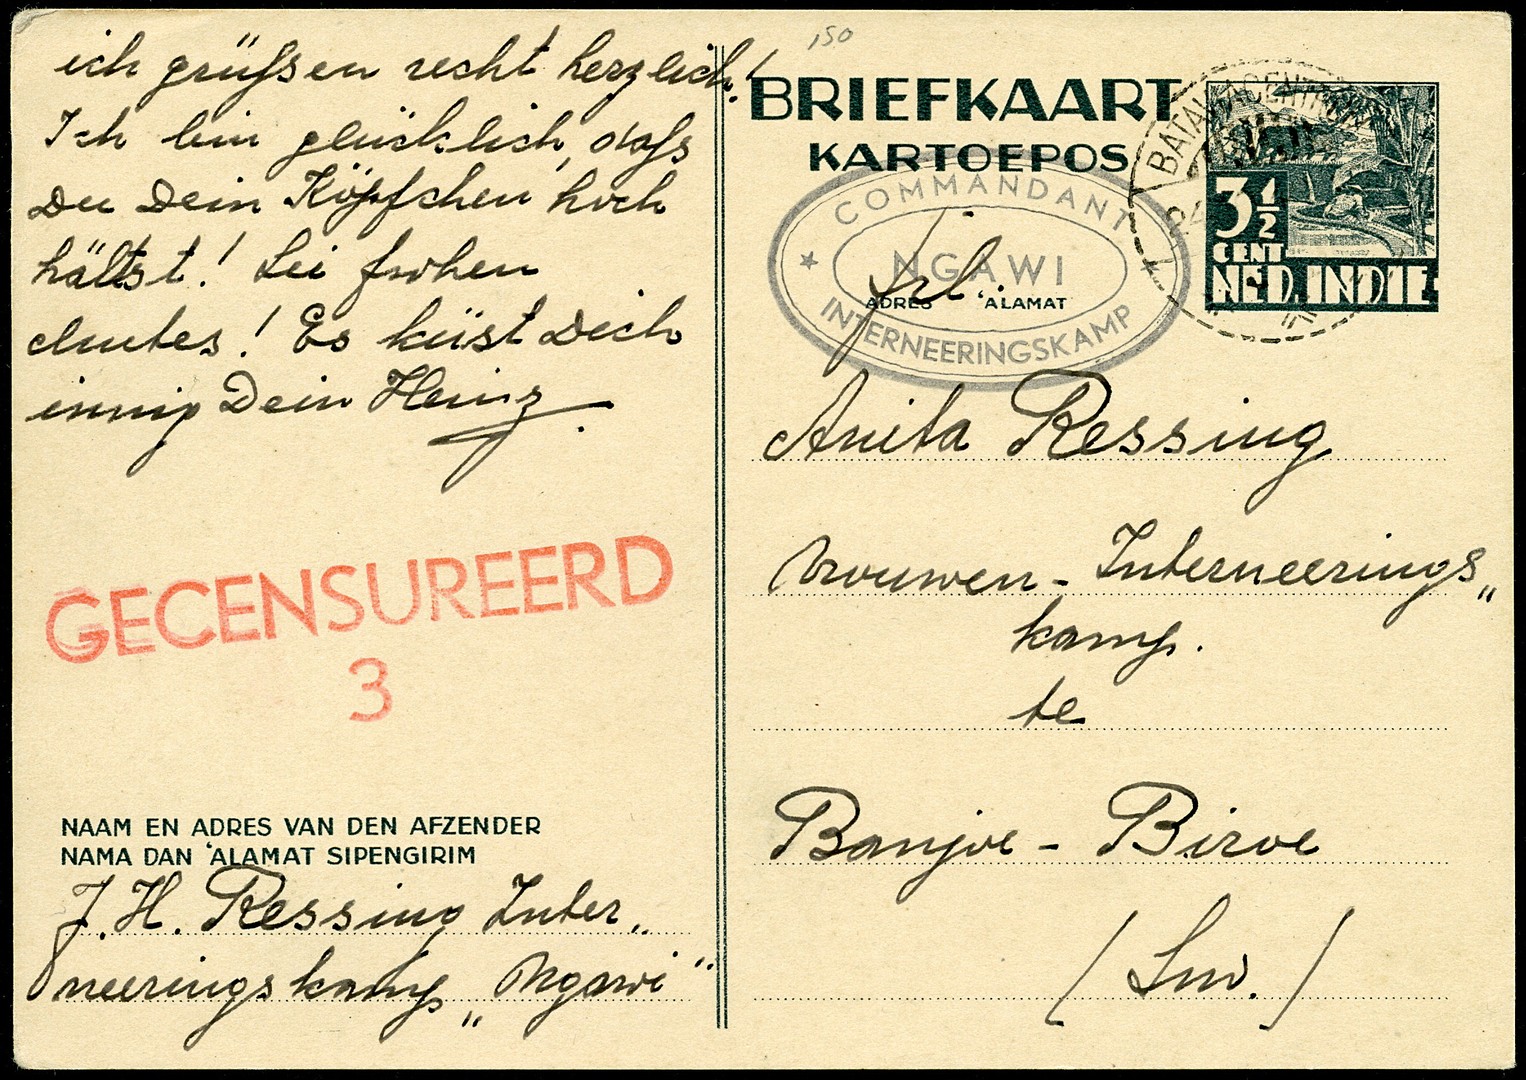 ich grüßen recht herzlich!
Ich bin glücklich, daß
Du Dein Köpfchen hoch
hältst! Sei frohen
Mutes! Es küst Dich
innig Dein Heinz.
GECENSUREERD
3
NAAM EN ADRES VAN DEN AFZENDER
NAMA DAN 'ALAMAT SIPENGIRIM
J. H. Ressing Inter„
neeringskamp „Ngawi"
150
BRIEFKAART
KARTOEPOS
COMMANDANT
NGAWI
INTERNEERINGSKAMP
ADRES 'ALAMAT
BATAVIACENTRUM
3½
CENT
NED. INDIE
Frl.
Anita Ressing
Vrouwen-Interneerings„
kamp.
te
Banjoe-Biroe
(Smr.)